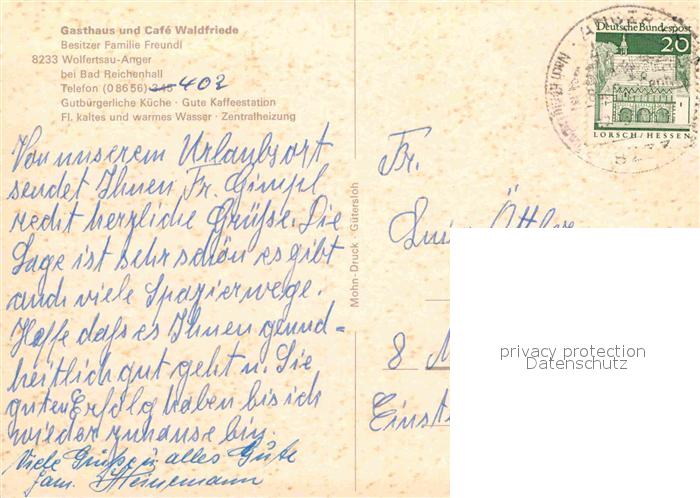 Gasthaus und Café Waldfriede
Besitzer Familie Freundl
8233 Wolfertsau-Anger
bei Bad Reichenhall
Telefon (0 86 56) 345 402
Gutbürgerliche Küche · Gute Kaffeestation
Fl. kaltes und warmes Wasser · Zentralheizung
Von unserem Urlaubsort
sendet Ihnen Fr. Gimpl
recht herzliche Grüße. Die
Lage ist sehr schön es gibt
auch viele Spazierwege.
Hoffe daß es Ihnen gesund=
heitlich gut geht u. Sie
guten Erfolg haben bis ich
wieder zuhause bin.
Viele Grüße u. alles Gute
Fam. Heinemann
Mohn-Druck · Gütersloh
ANGER
Deutsche Bundespost
20
LORSCH/HESSEN
Fr.
8 M
Einst
privacy protection
Datenschutz